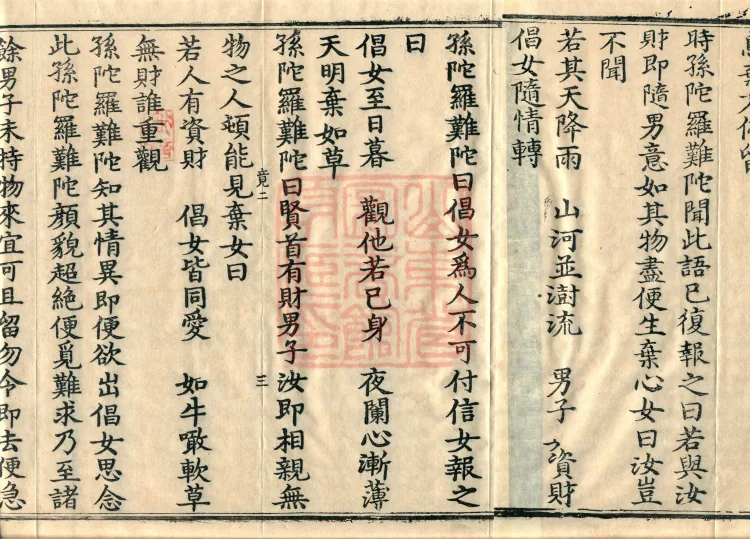 時孫陀羅難陀聞此語已復報之曰若與汝
財即隨男意如其物盡便生棄心女曰汝豈
不聞
若其天降雨　山河並澍流　男子　資財
倡女隨情轉
孫陀羅難陀曰倡女為人不可付信女報之
曰
倡女至日暮　觀他若己身　夜闌心漸薄
天明棄如草
孫陀羅難陀曰賢首有財男子汝即相親無
竟二　三
物之人頓能見棄女曰
若人有資財　倡女皆同愛　如牛噉軟草
無財誰重觀
孫陀羅難陀知其情異即便欲出倡女思念
此孫陀羅難陀顏貌超絕便覓難求乃至諸
餘男子未持物來宜可且留勿令即去便急